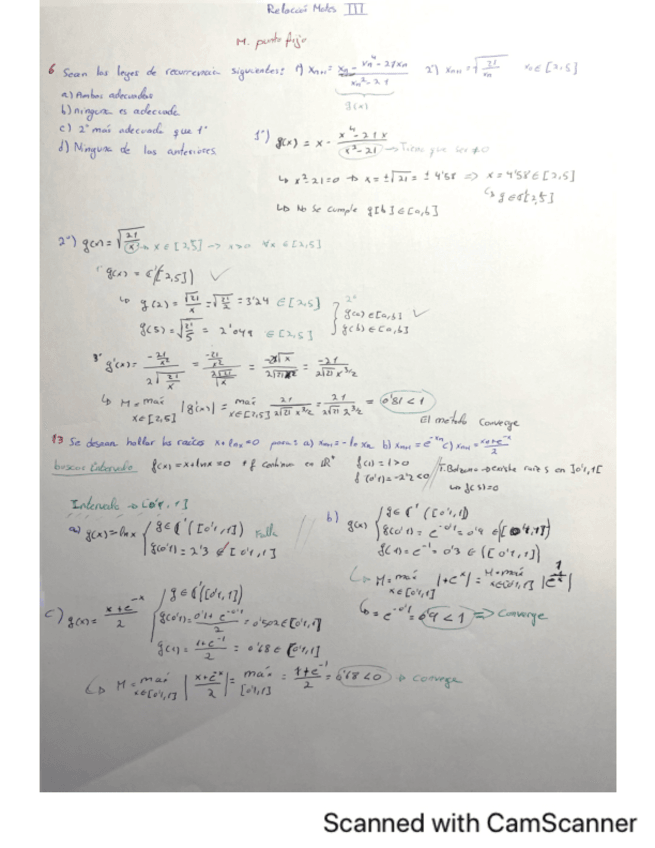 Relación Motes III
M. punto fijo
6 Sean las leyes de recurrencia siguientes: 1º) xₙ₊₁ = xₙ - (xₙ⁴ - 21xₙ)/(xₙ² - 21) 2º) xₙ₊₁ = √(21/xₙ) x₀ ∈ [2,5]
g(x)
a) Ambas adecuadas
b) ninguna es adecuada
c) 2ª más adecuada que 1ª
d) Ninguna de las anteriores
1º) g(x) = x - (x⁴ - 21x)/(x² - 21) → Tiene que ser ≠0
↳ x² - 21 = 0 → x = ±√21 = ± 4'58 ⇒ x = 4'58 ∈ [2,5]
↳ No se cumple g[b] ∈ [a,b]
2º) g(x) = √(21/x) → x ∈ [2,5] → x>0 ∀x ∈ [2,5]
g(x) = C¹([2,5]) ✓
↳ g(2) = √(21/x) = √(21/2) = 3'24 ∈ [2,5]
g(5) = √(21/5) = 2'049 ∈ [2,5]
2º g(a) ∈ [a,b] ✓
g(b) ∈ [a,b]
↳ M = máx x∈[2,5] |g'(x)| = máx x∈[2,5] 21/(2√21 x^3/2) = 21/(2√21 2^3/2) = 0'81 < 1
El método converge
13 Se desean hallar las raíces x+lnx=0 para: a) xₙ₊₁ = -ln xₙ b) xₙ₊₁ = e^-xₙ c) xₙ₊₁ = (xₙ+e^-x)/2
buscar Intervalo f(x) = x+lnx = 0 → f continua en ℝ⁺ f(1) = 1 > 0
f(0'1) = -2'2 < 0 T.Bolzano → existe raíz s en ]0'1,1[
↳ f(s)=0
Intervalo → [0'1, 1]
a) g(x) = lnx { g ∈ C¹([0'1,1]) Falla
g(0'1) = 2'3 ∉ [0'1,1]
b) g(x) { g ∈ C¹([0'1,1])
g(0'1) = e^-0'1 = 0'9 ∈ ([0'1,1])
g(1) = e^-1 = 0'3 ∈ ([0'1,1])
↳ = e^-0'1 = 0'9 < 1 ⇒ Converge
c) g(x) = (x+e^-x)/2 { g ∈ C¹([0'1,1])
g(0'1) = (0'1+e^-0'1)/2 = 0'502 ∈ [0'1,1]
g(1) = (1+e^-1)/2 = 0'68 ∈ [0'1,1]
↳ M = máx x∈[0'1,1] |(x+e^-x)/2| = máx [0'1,1] = (1+e^-1)/2 = 0'68 < 0 → Converge
Scanned with CamScanner